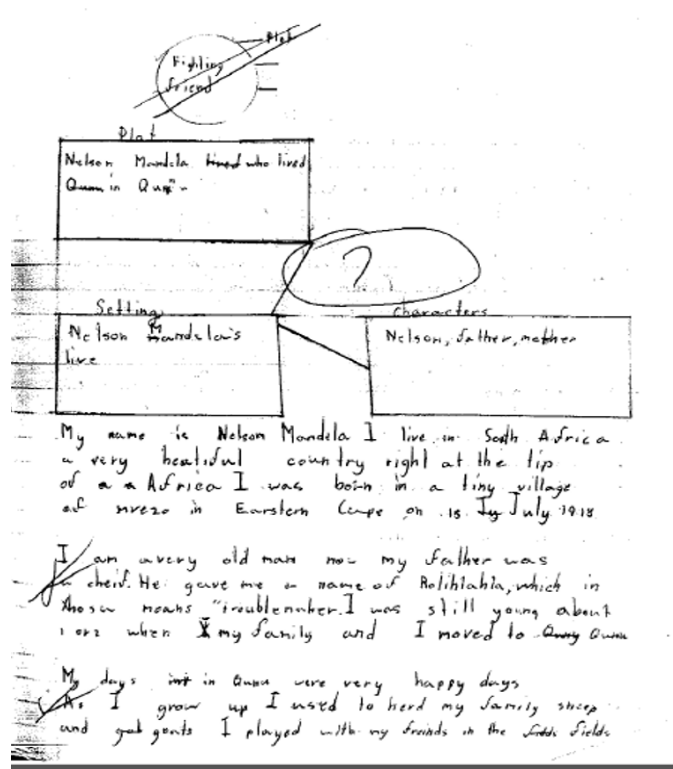 Plot
Fighting
friend
Plot
Nelson Mandela lived who lived
Qunu in Qunu
?
Setting
Characters
Nelson Mandela's
live
Nelson, father, mother
My name is Nelson Mandela I live in South Africa
a very beatiful country right at the tip
of a a Africa I was born in a tiny village
of mvezo in Earstern Cape on 18 July 1918
I am a very old man now my father was
a cheif. He gave me a name of Rolihlahla, which in
Xhosa means "troublemaker. I was still young about
1 or 2 when my family and I moved to Qunu
My days in Qunu were very happy days
As I grow up I used to herd my family sheep
and goats I played with my freinds in the fields